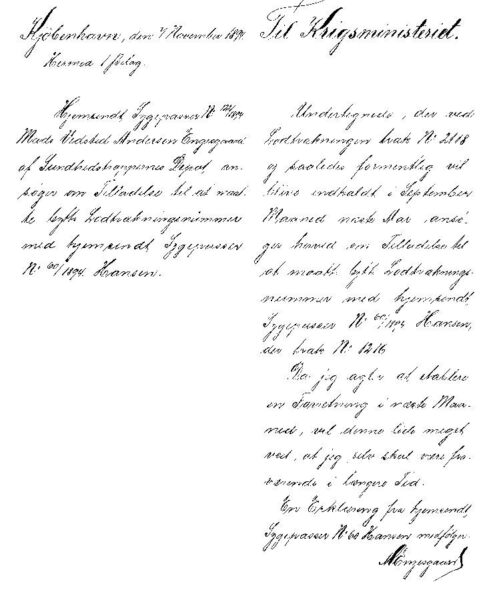 Kjöbenhavn, den 7 November 1894.
Hermed 1 Bilag.
Hjemsendt Sygepasser No 122/1894
Mads Vedsted Andersen Engesgaard
af Sundhedstroppernes Depot an-
søger om Tilladelse til at maat-
te bytte Lodtrækningsnummer
med hjemsendt Sygepasser
No 60/1894 Hansen.
Til Krigsministeriet.
Undertegnede, der ved
Lodtrækningen trak No 2118
og saaledes formentlig vil
blive indkaldt i September
Maaned næste Aar ansö-
ger herved om Tilladelse til
at maatte bytte Lodtræknings-
nummer med hjemsendt
Sygepasser No 60/1894 Hansen,
der trak No 1216
Da jeg agter at etablere
en Forretning i næste Maa-
ned, vil denne lide meget
ved, at jeg selv skal være fra-
værende i længere Tid.
En Erklæring fra hjemsendt
Sygepasser No 60 Hansen medfölger